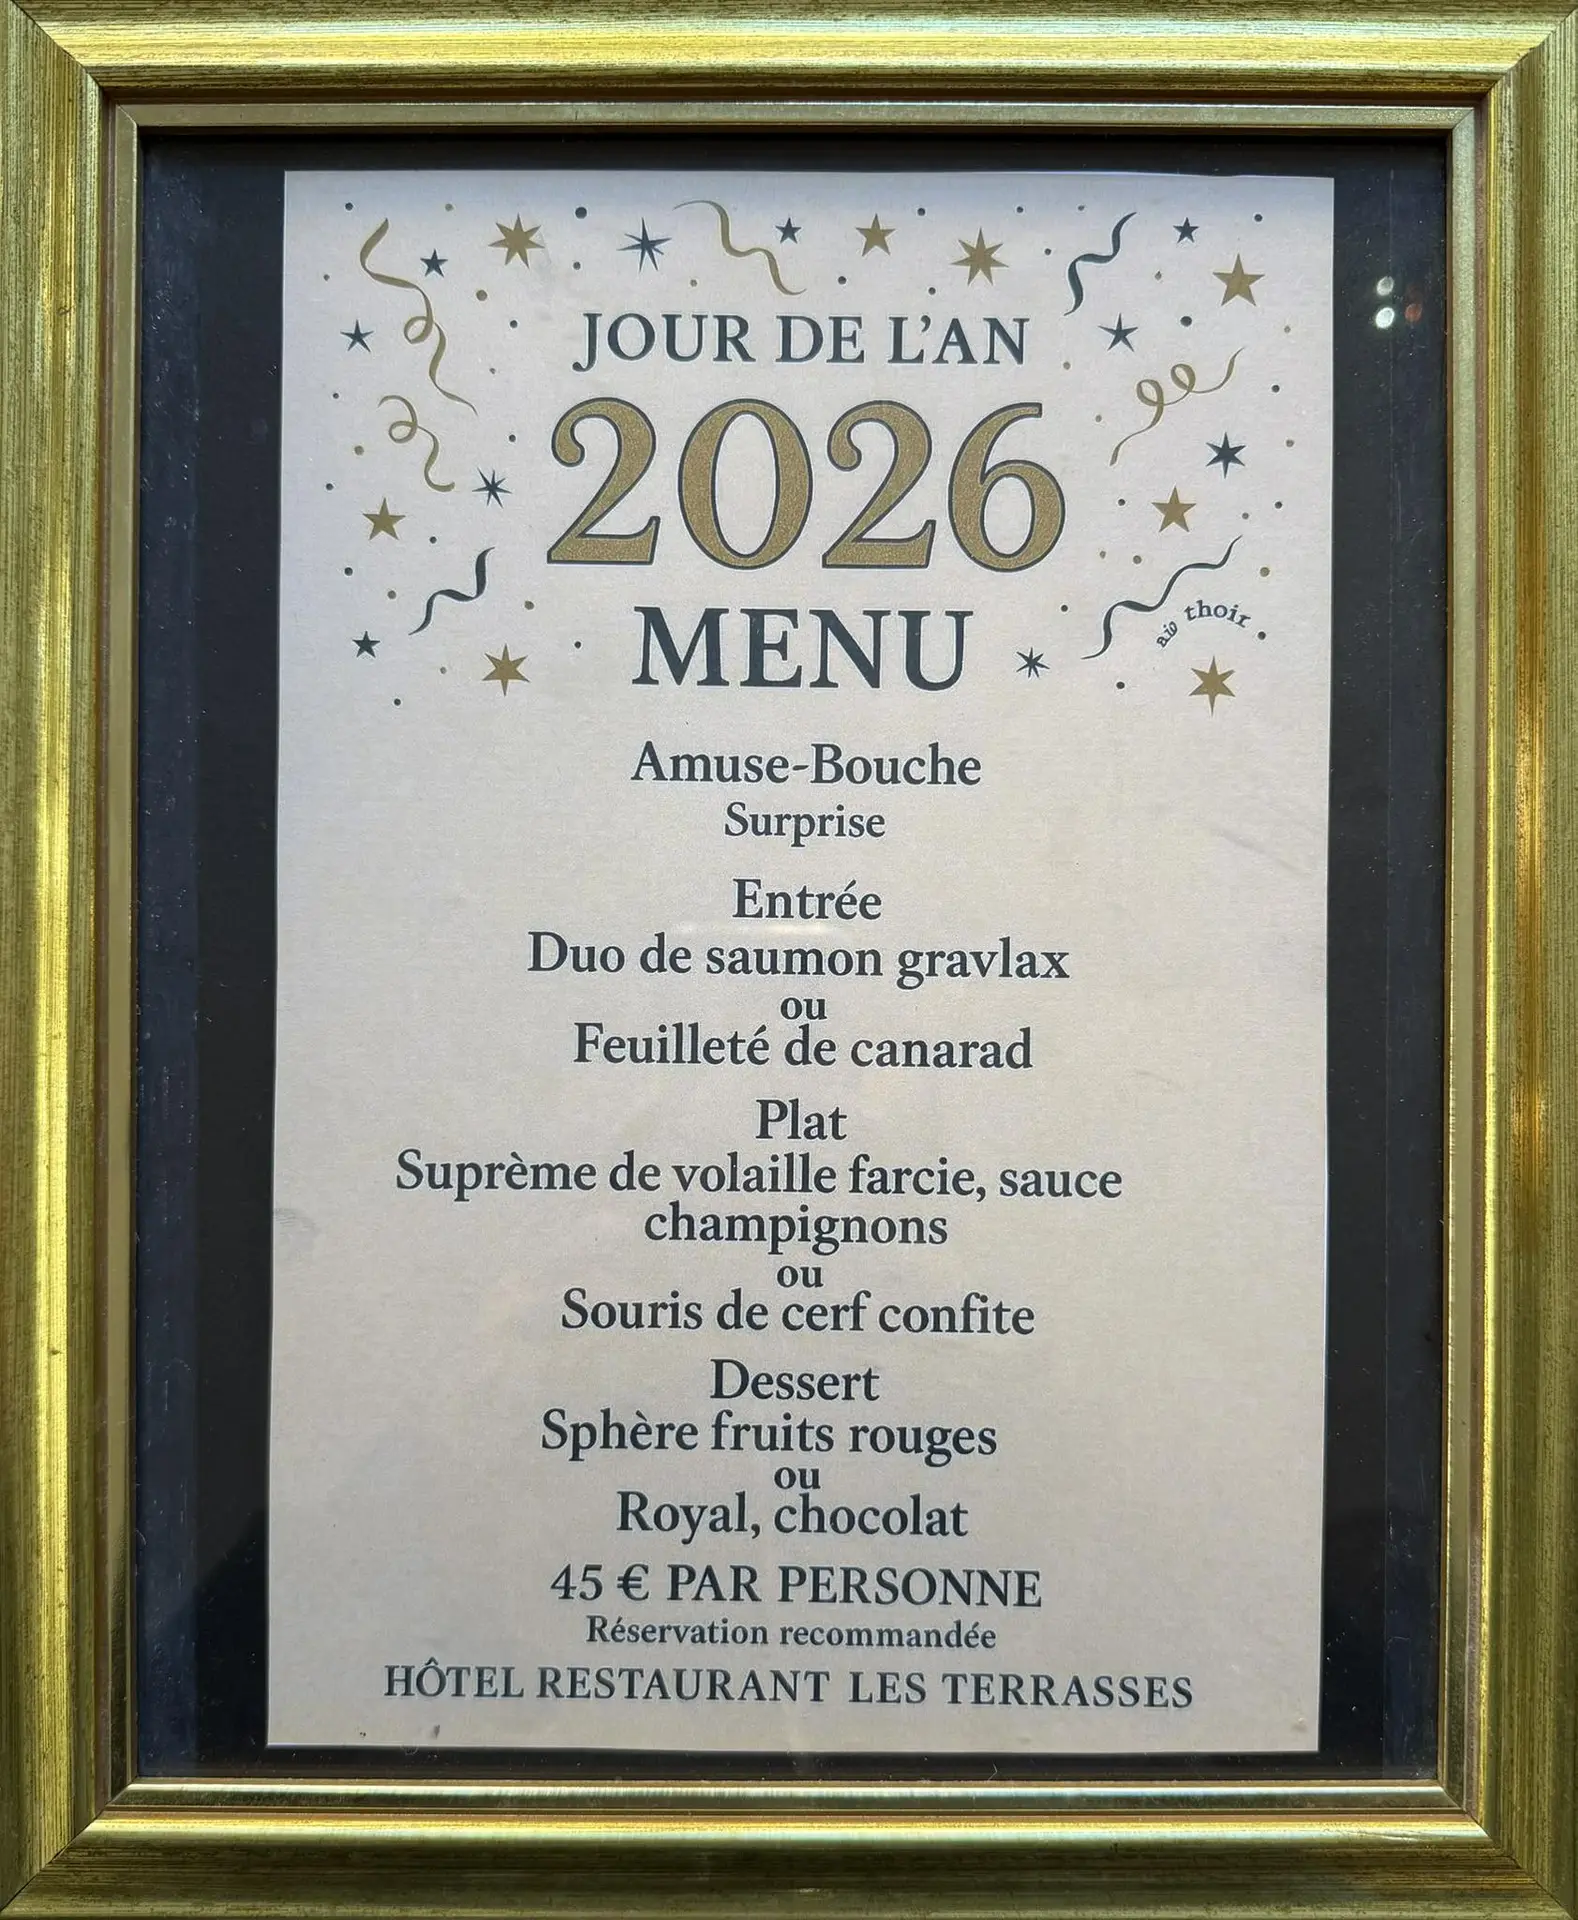 JOUR DE L'AN
2026
MENU
aio thoir
Amuse-Bouche
Surprise
Entrée
Duo de saumon gravlax
ou
Feuilleté de canarad
Plat
Suprème de volaille farcie, sauce
champignons
ou
Souris de cerf confite
Dessert
Sphère fruits rouges
ou
Royal, chocolat
45 € PAR PERSONNE
Réservation recommandée
HÔTEL RESTAURANT LES TERRASSES